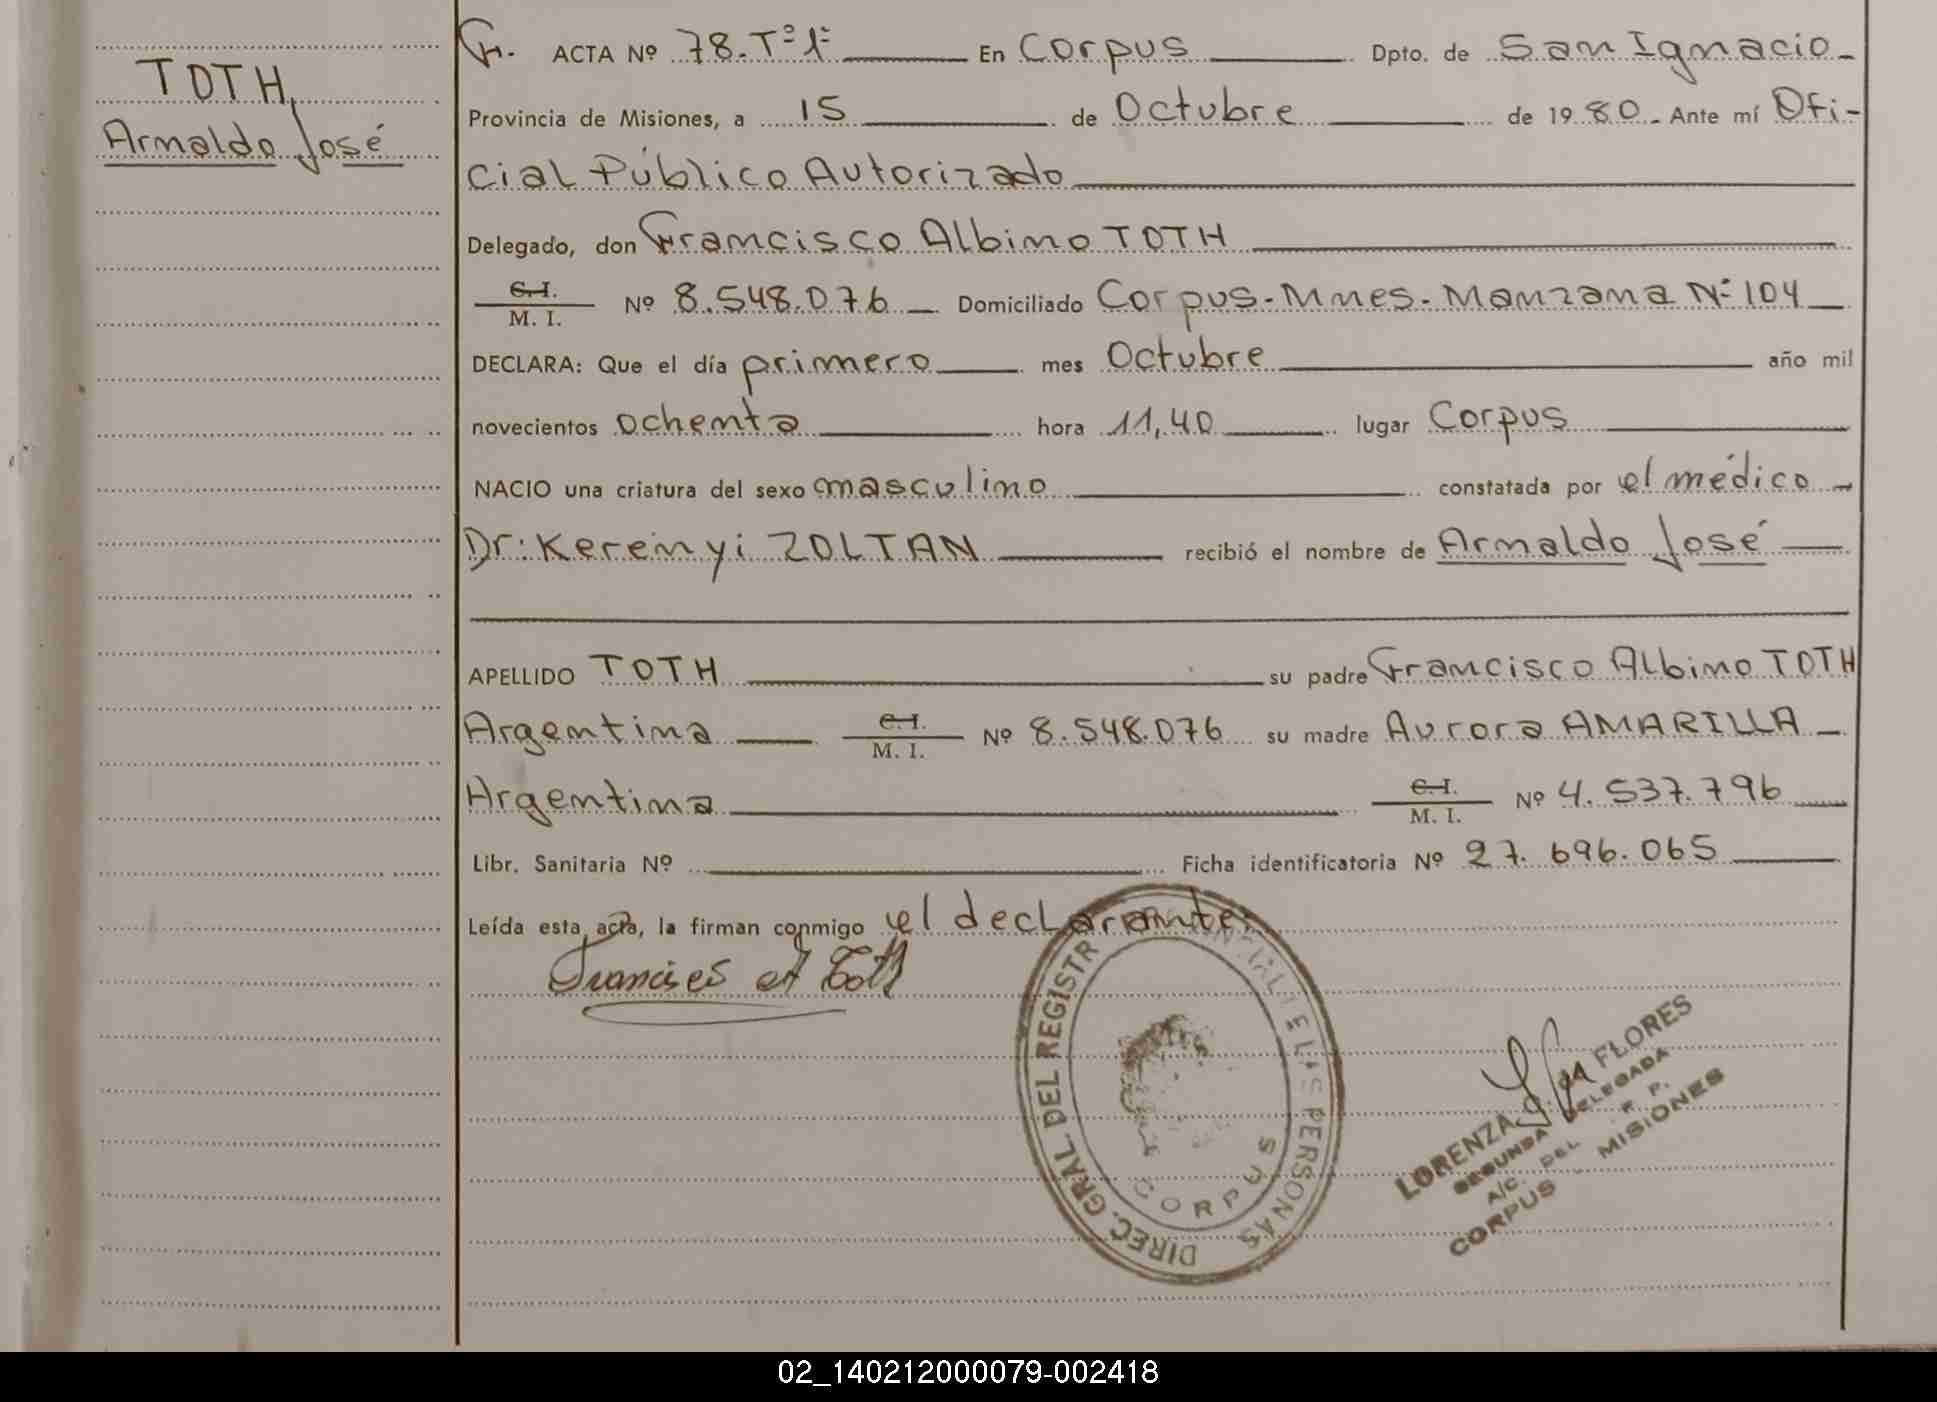 TOTH,
Arnaldo José
ACTA Nº 78.Tº1º En Corpus Dpto. de San Ignacio
Provincia de Misiones, a 15 de Octubre de 1980 Ante mí Ofi-
cial Público Autorizado
Delegado, don Francisco Albino TOTH
C.I.
M. I. Nº 8.548.076 Domiciliado Corpus-Mnes-Manzana Nº 104
DECLARA: Que el día primero mes Octubre año mil
novecientos ochenta hora 11,40 lugar Corpus
NACIO una criatura del sexo masculino constatada por el médico
Dr: Kerenyi ZOLTAN recibió el nombre de Arnaldo José
APELLIDO TOTH su padre Francisco Albino TOTH
Argentina C.I. M. I. Nº 8.548.076 su madre Aurora AMARILLA
Argentina C.I. M. I. Nº 4.537.796
Libr. Sanitaria Nº Ficha identificatoria Nº 27.696.065
Leída esta acta, la firman conmigo el declarante:
Francisco A Toth
DIREC. GRAL. DEL REGISTR PERSONAS
CORPUS
LORENZA FLORES
SEGUNDA DELEGADA
A/C. DEL R. P.
CORPUS - MISIONES
02_140212000079-002418